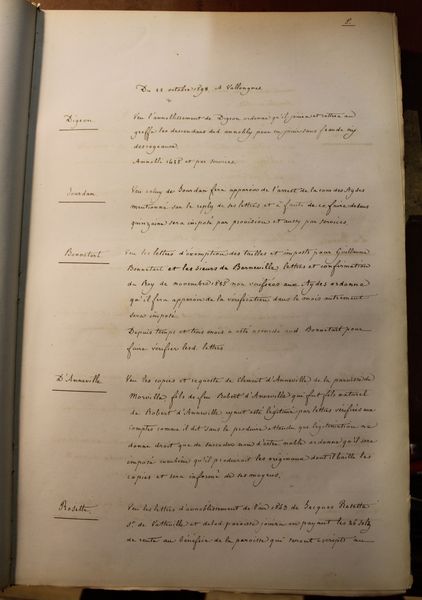 8.
Du 22 octobre 1598 A Vallongnes
Digeon
Veu l'annoblissement de Digeon ordonne qu'il jouira et mettra au
greffe les descendans dud annobly pour en jouir sans fraude ny
desrogeance.
Annobli 1488 et par services.
Jourdan
Veu celuy de Jourdan fera apparoir de l'arrest de la cour des Aydes
mentionné sur le reply de ses lettres et à faute de ce faire dedans
quinzaine sera imposé par provision et aussy par services.
Bonnetart
Veu les lettres d'exemption des tailles et imposts pour Guillaume
Bonnetart et les sieurs de Barneville lettres et confirmation
du Roy de novembre non vérifiées aux Aydes ordonne
qu'il fera apparoir de la vérification dans le mois autrement
sera imposé.
Depuis temps et trois mois a esté accordé aud Bonnetart pour
faire vérifier lesd. lettres
D'Anneville
Veu les copies et requeste de Clément d'Anneville de la paroisse de
Morville fils de feu Robert d'Anneville qui fut fils naturel
de Robert d'Anneville ayant esté légitimé par lettres vérifiées aux
comptes comme il dit sans le produire attendu que légitimation ne
donne droit que de succéder non d'estre noble ordonne qu'il sera
imposé combien qu'il produirait les originaux dont il baille les
copies et sera informé de ses moyens.
Rosette
Veu les lettres d'annoblissement de l'an 1543 de Jacques Rosette
Sr. de et de lad paroisse jouira en payant les 26 sols
de rente au bénéfice de la paroisse qui seront escripts au